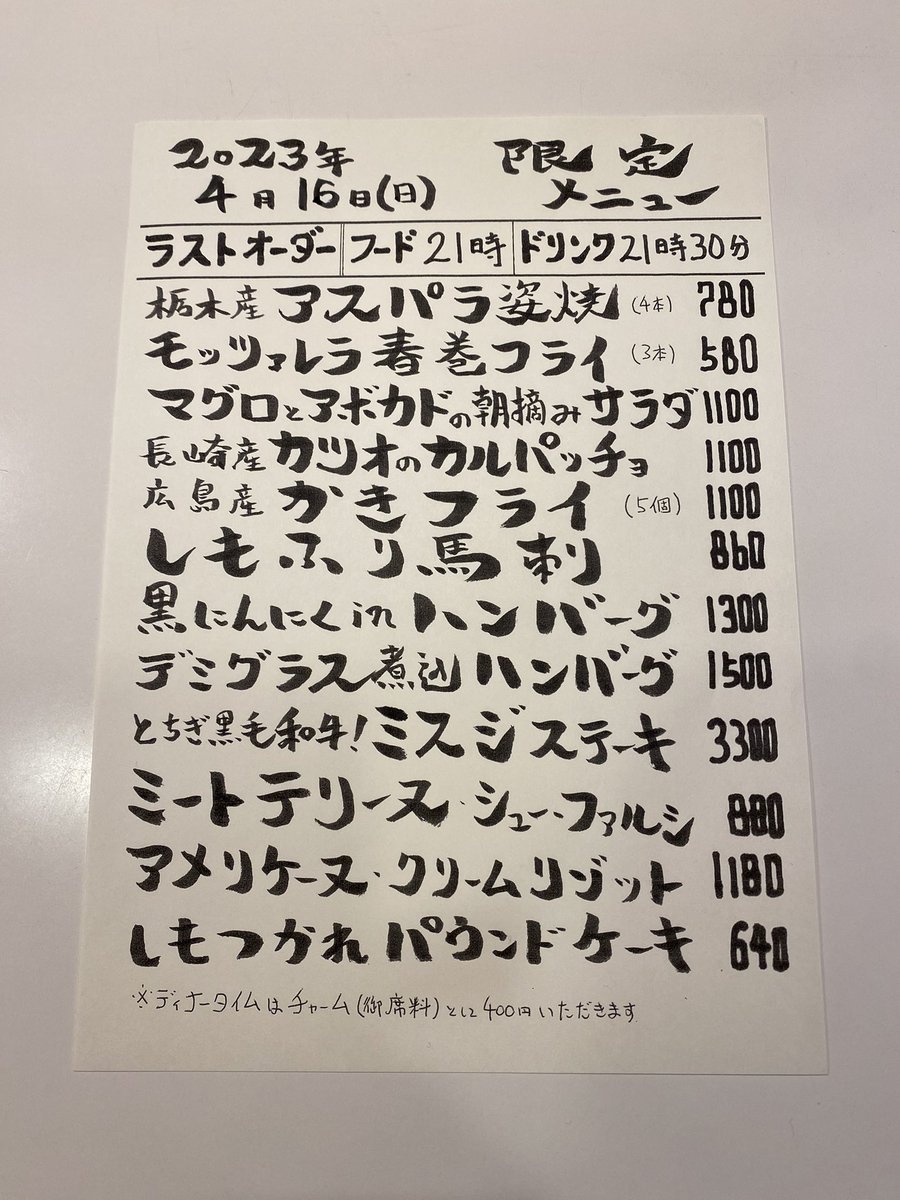 2023年 限定
4月16日(日) メニュー
ラストオーダー フード21時 ドリンク21時30分
栃木産 アスパラ姿焼 (4本) 780
モッツァレラ春巻フライ (3本) 580
マグロとアボカドの朝摘みサラダ 1100
長崎産 カツオのカルパッチョ 1100
広島産 かきフライ (5個) 1100
しもふり馬刺 860
黒にんにくin ハンバーグ 1300
デミグラス煮込 ハンバーグ 1500
とちぎ黒毛和牛!ミスジステーキ 3300
ミートテリーヌ・シュー・ファルシ 880
アメリケーヌ・クリームリゾット 1180
しもつかれパウンドケーキ 640
※ディナータイムはチャーム(御席料)として400円いただきます